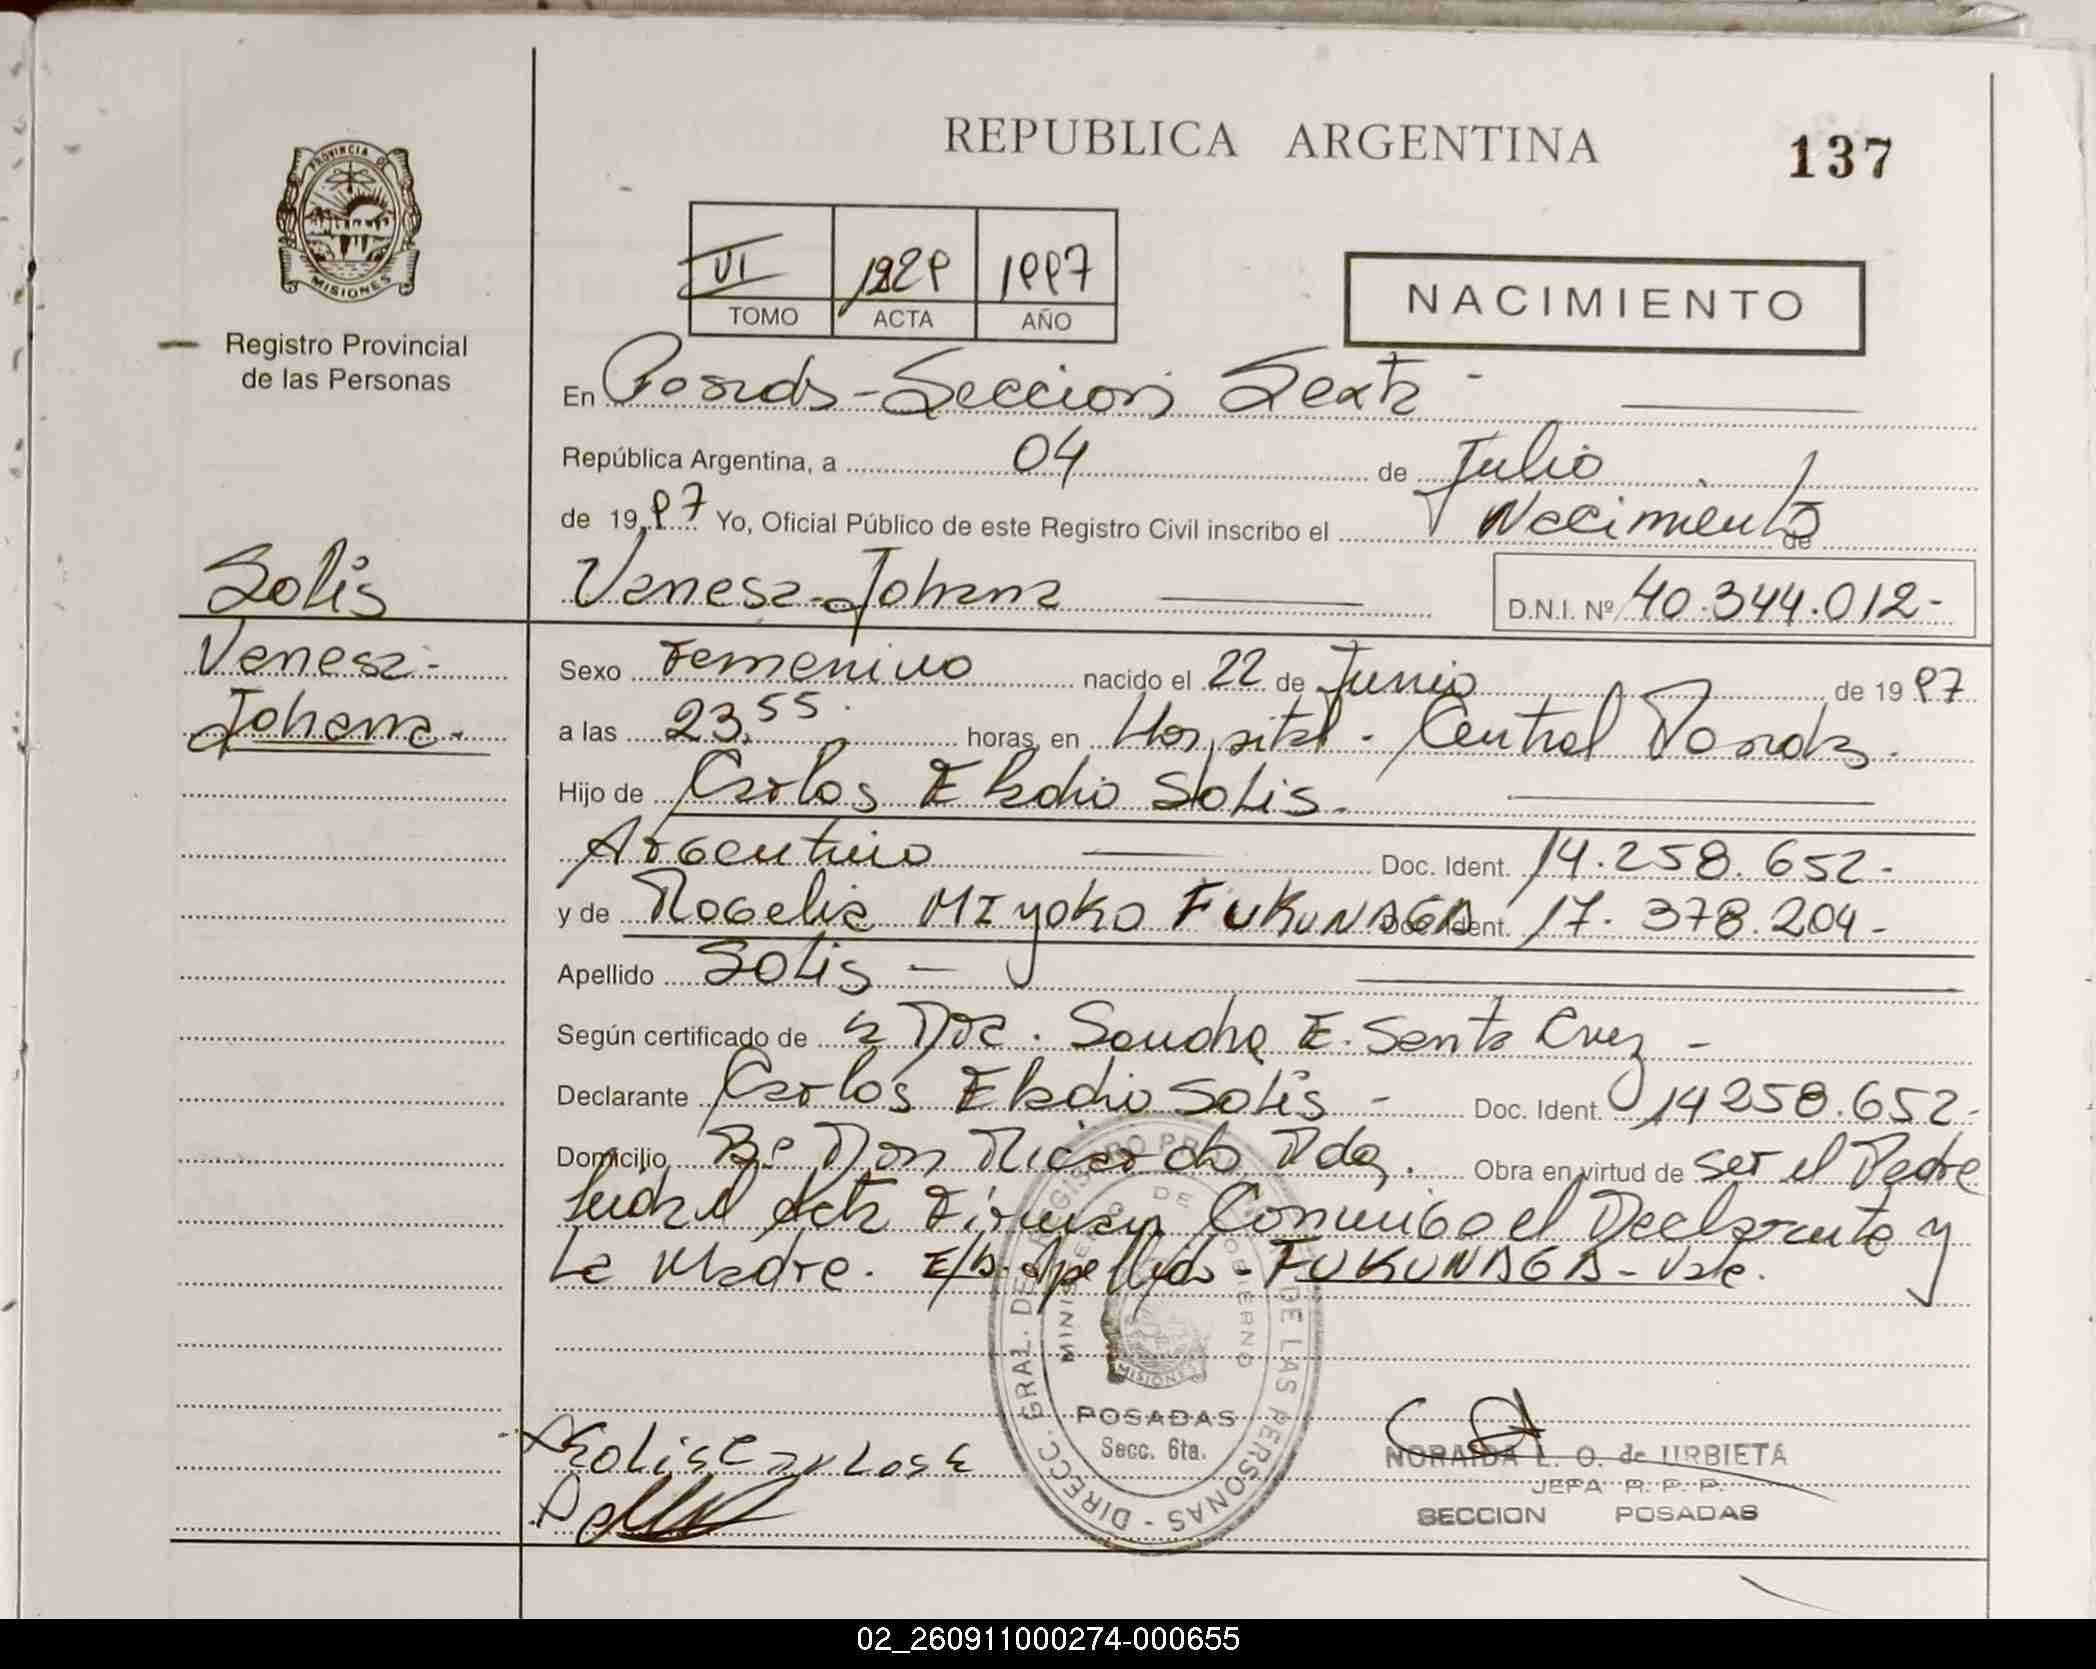 REPUBLICA ARGENTINA
137
PROVINCIA DE
MISIONES
Registro Provincial
de las Personas
VI 1929 1997
TOMO ACTA AÑO
NACIMIENTO
En Posadas - Seccion Sexta -
República Argentina, a 04 de Julio
de 1997 Yo, Oficial Público de este Registro Civil inscribo el Nacimiento de
Solis
Vanesa - Johana
D.N.I. Nº 40.344.012-
Vanesa -
Johana -
Sexo Femenino nacido el 22 de Junio de 1997
a las 23,55 horas, en Hospital - Central Posadas.
Hijo de Carlos Eladio Solis.
Argentino Doc. Ident. 14.258.652-
y de Rogelia MIyoko FUKUNAGA Doc. Ident. 17.378.204-
Apellido Solis -
Según certificado de la Dra. Sandra E. Santa Cruz -
Declarante Carlos Eladio Solis - Doc. Ident. 14258.652-
Domicilio Bº Don Ricardo Pdas. Obra en virtud de ser el Padre
Leida el Acta Firman Conmigo el Declarante y
La Madre. E/A. Apellido - FUKUNAGA - Vale.
DIRECC. GRAL. DEL REGISTRO PROVINCIAL DE LAS PERSONAS -
MINISTERIO DE GOBIERNO
MISIONES
POSADAS
Secc. 6ta.
Solis Carlos E
NORAIDA L. O. de URBIETA
JEFA R. P. P.
SECCION POSADAS
02_260911000274-000655